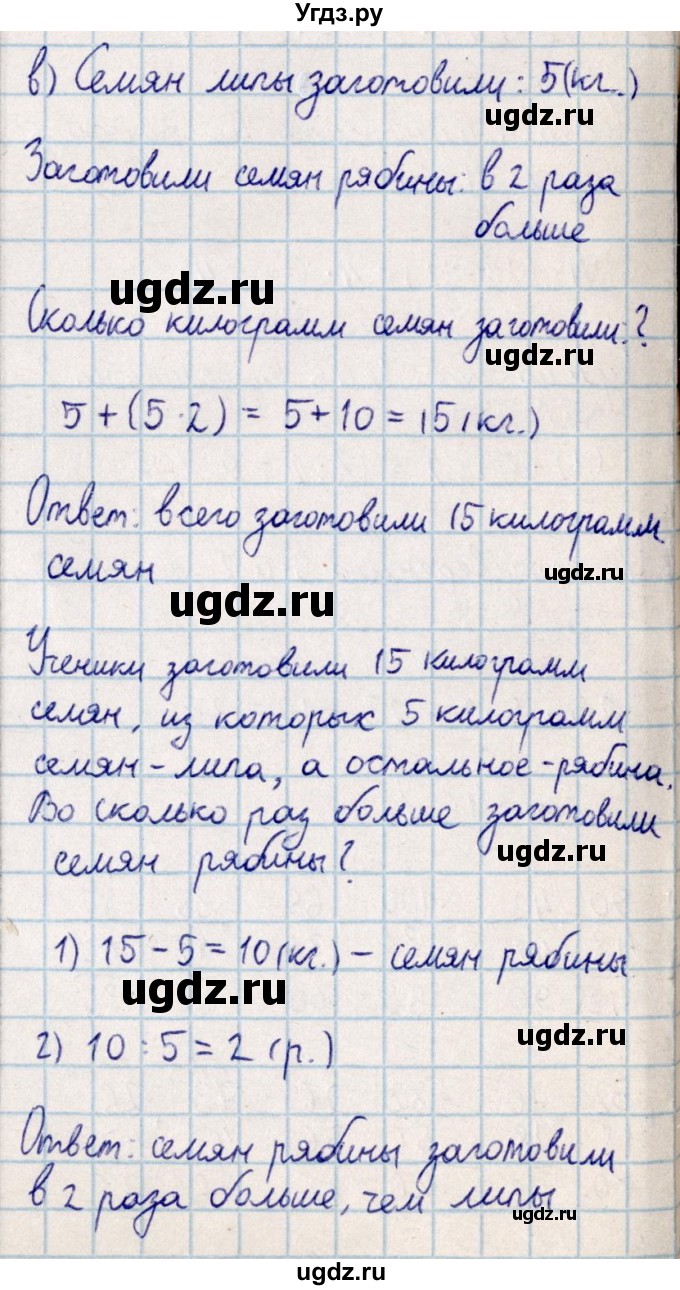 Угдз.ру
в) Семян липы заготовили: 5(кг.)
ugdz.ru
Заготовили семян рябины: в 2 раза
больше
ugdz.ru
Сколько килограмм семян заготовили?
ugdz.ru
5+(5·2) = 5+10 = 15(кг.)
Ответ: всего заготовили 15 килограмм
семян
ugdz.ru
ugdz.ru
Ученики заготовили 15 килограмм
семян, из которых 5 килограмм
семян - липа, а остальное - рябина.
Во сколько раз больше заготовили
ugdz.ru
семян рябины?
1) 15 - 5 = 10(кг.) - семян рябины
ugdz.ru
ugdz.ru
2) 10 : 5 = 2 (р.)
Ответ: семян рябины заготовили
в 2 раза больше, чем липы
ugdz.ru
ugdz.ru